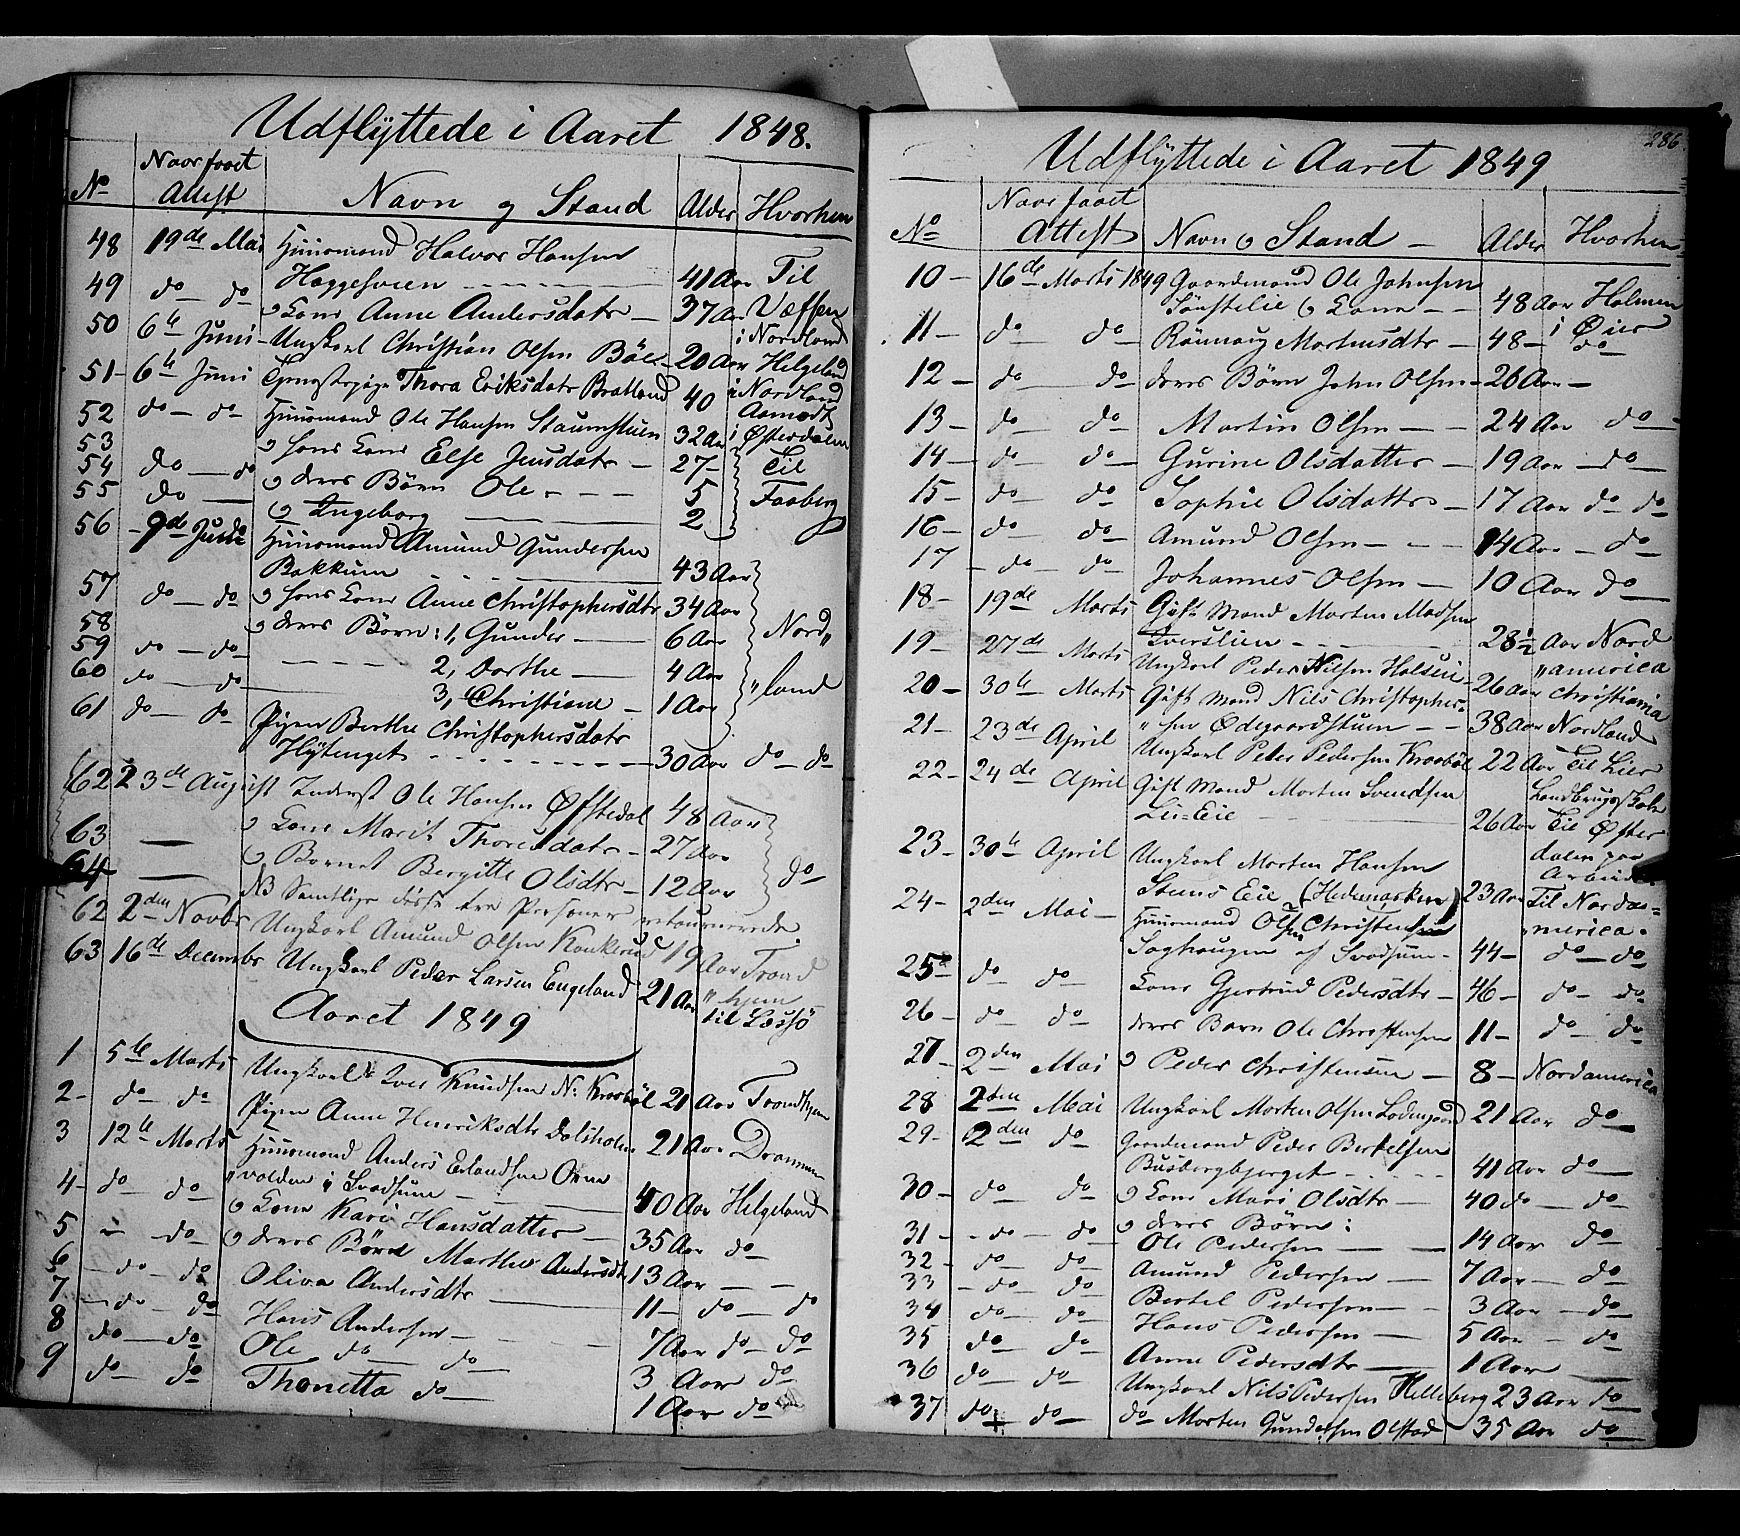 Udflyttede i Aaret 1848.
No Naar faaet Attest Navn og Stand Alder Hvorhen
48 19de Mai Huusmand Halvor Hansen
Haggesveen 41 Aar Til
49 do do Kone Anne Andersdatr 37 Aar Væffsen
50 6te Juni Ungkarl Christian Olsen Böe 20 Aar i Nordland Helgeland
51 6te Juni Tjenestepige Thora Eriksdatr Bratland 40 i Nordland Aamodt
52 do do Huusmand Ole Hansen Staumstuen 32 Aar i Østerdalen
53 hans Kone Else Jensdatr 27 Til
54 do do deres Börn Ole 5 Faaberg
55 do Ingeborg 2
56 9de Huusmand Amund Gundersen
Bakkum 43 Aar
57 do do hans Kone Anne Christophersdtr 34 Aar
58 deres Börn: 1, Gunder 6 Aar Nord„
59 do do 2, Dorthe 4 Aar
60 do do 3, Christiane 1 Aar „land
61 do do Pigen Berthe Christophersdatr
Hytenget 30 Aar do do
62 23de August Inderst Ole Hansen Øfstedal 48 Aar
63 Kone Marit Thoresdatr 27 Aar
64 Barnet Bergitte Olsdtr 12 Aar do
NB Samtlige disse tre Personer retournerede.
62 2den Novbr Ungkarl Amund Olsen Kankerud 19 Aar Trond
63 16de Decembr Ungkarl Peder Larsen Engeland 21 Aar „hjem til Lessö
Aaret 1849
1 5te Marts Ungkarl Iver Knudsen N: Kraaböl 21 Aar Trondhjem
2 do do Pigen Anne Henriksdtr Dalsholen 21 Aar Drammen
3 12te Marts Huusmand Anders Erlandsen
„volden i Svadsum 40 Aar Helgeland
4 do do Kone Kari Hansdatter 35 Aar do
5 do deres Börn Marthe Andersdtr 13 Aar
6 do do Oliva Andersdtr 11 do do
7 do do Hans Andersen 7 Aar do do
8 do do Ole do do 3 Aar do
9 do do Thonetta do 1 Aar do
286
Udflyttede i Aaret 1849
No Naar faaet Attest Navn Stand Alder Hvorhen
10 16de Marts 1849 Gaardmand Ole Johnsen
Kone 48 Aar Holmen
11 do do Rönnaug Mortensdtr 48 i Øier do
12 do do deres Börn John Olsen 26 Aar
13 do do Martin Olsen 24 Aar do
14 do do Gurine Olsdatter 19 Aar do
15 do do Sophie Olsdattr 17 Aar do do
16 do do Amund Olsen 14 Aar do
17 do do Johannes Olsen 10 Aar do
18 19de Marts Gift Mand Morten Madsen
Iverslien 28½ Aar Nord
19 27de Marts Ungkarl Peder Nilsen Holsen 26 Aar „america
20 30te Marts Gift Mand Nils Christopher- Christiania
„sen Ødegaardstuen 38 Aar Nordland
21 23de April Ungkarl Peder Pedersen Kraaböl 22 Aar Til Lier
22 24de April Gift Mand Morten Svendsen Landbrugsskole
Lie-Eie 26 Aar Til Øster
23 30te April Ungkarl Morten Hansen dalen paa
Steens Eie (Hedemarken) 23 Aar Arbeide
24 2den Mai Huusmand Olsen Christensen Til Norda-
Saghaugen af Svadsum 44 merica.
25 do do Kone Gjertrud Pedersdtr 46 do do
26 do do deres Barn Ole Christensen 11 do do
27 2den Mai Peder Christensen 8 Nordamerica
28 2den Mai Ungkarl Morten Olsen Lodengaard 21 Aar do
29 2den do Gaardmand Peder Bertelsen
Busbergbjerget 41 Aar do
30 do do Kone Mari Olsdtr 40 do do
31 do do deres Börn:
Ole Pedersen 14 Aar do
32 do do Amund Pedersen 7 Aar do
33 do do Bertel Pedersen 3 Aar do
34 do do Hans Pedersen 5 Aar do
35 do do Anne Pedersdtr 1 Aar
36 do do Ungkarl Nils Pedersen Helleberg 23 Aar do
37 do do do Morten Gundersen Olstad 35 Aar do